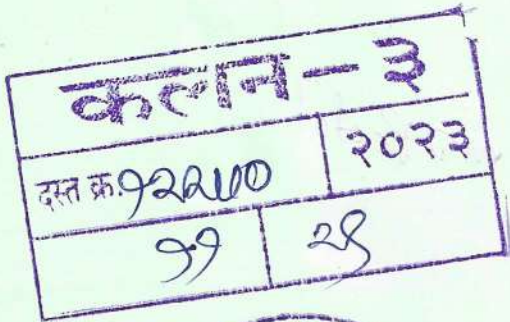 कलन - ३
दस्त क्र. १२२५० २०२३
११ २९